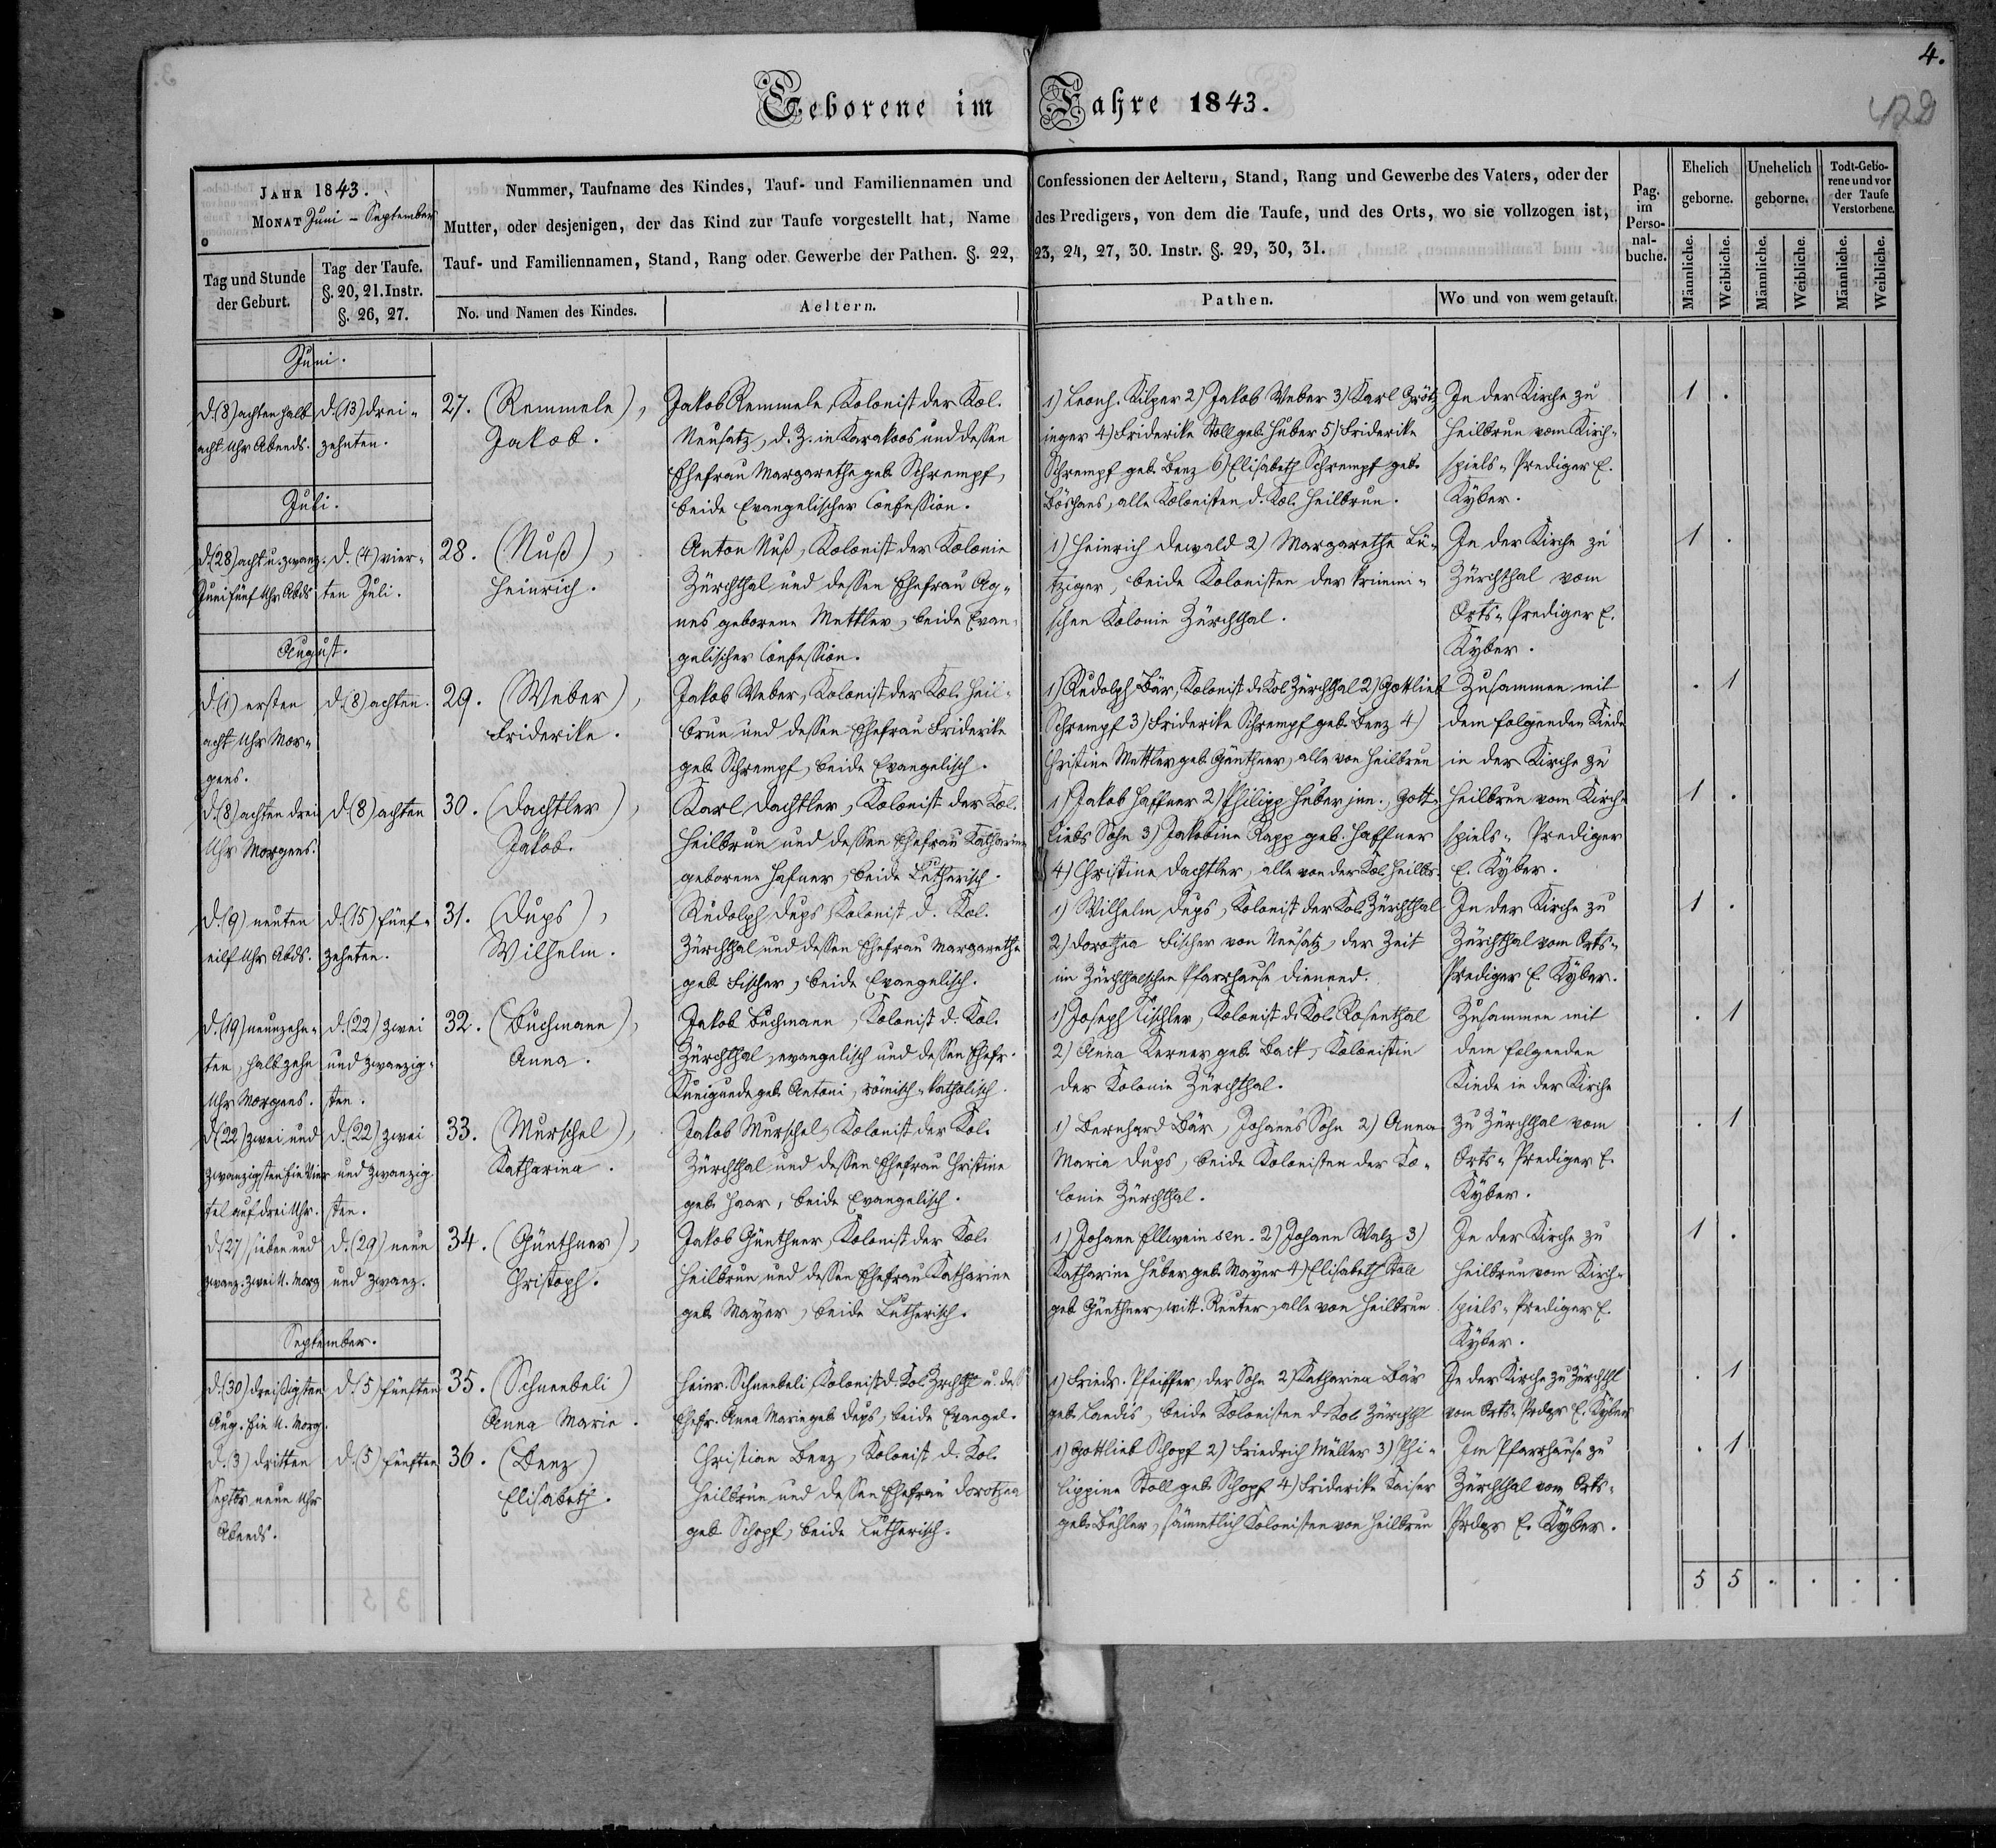 4.
Geborene im Jahre 1843.
JAHR 1843.
MONAT Juni - September
Tag und Stunde der Geburt.
Tag der Taufe. §. 20, 21. Instr. §. 26, 27.
Nummer, Taufname des Kindes, Tauf- und Familiennamen und Confessionen der Aeltern, Stand, Rang und Gewerbe des Vaters, oder der
Mutter, oder desjenigen, der das Kind zur Taufe vorgestellt hat, Name des Predigers, von dem die Taufe, und des Orts, wo sie vollzogen ist,
Tauf- und Familiennamen, Stand, Rang oder Gewerbe der Pathen. §. 22, 23, 24, 27, 30. Instr. §. 29, 30, 31.
No. und Namen des Kindes.
Aeltern.
Pathen.
Wo und von wem getauft.
Pag. im Perso-nal-buche.
Ehelich geborne.
Unehelich geborne.
Todt-Gebo-rene und vor der Taufe Verstorbene.
Männliche. Weibliche. Männliche. Weibliche. Männliche. Weibliche.
Juni.
d. (8) achten halb
acht Uhr Abends.
d. (13) drei-
zehnten.
27. (Remmele),
Jakob.
Jakob Remmele, Kolonist der Kol.
Neusatz, d. Z. in Karakoos und dessen
Ehefrau Margarethe geb. Schrempf,
beide Evangelischer Confession.
1) Leonh. Kilper 2) Jakob Weber 3) Karl Grötz
inger 4) Friderike Stoll geb. Huber 5) Friderike
Schrempf geb. Benz 6) Elisabeth Schrempf geb.
alle Kolonisten d. Kol. Heilbrun.
In der Kirche zu
Heilbrun vom Kirch-
spiels-Prediger E.
Kyber.
1 .
Juli.
d. (28) acht u. zwanz.
Juni fünf Uhr Abds
d. (4) vier-
ten Juli.
28. (Nuß),
Heinrich.
Anton Nuß, Kolonist der Kolonie
Zürchthal und dessen Ehefrau Ag-
nes geborene Mettler, beide Evan-
gelischer Confession.
1) Heinrich Dewald 2) Margarethe Lü-
tziger, beide Kolonisten der krimmi-
schen Kolonie Zürchthal.
In der Kirche zu
Zürchthal vom
Orts-Prediger E.
Kyber.
1 .
August.
d. (1) ersten
acht Uhr Mor-
gens.
d. (8) achten.
29. (Weber),
Friderike.
Jakob Weber, Kolonist der Kol. Heil-
brun und dessen Ehefrau Friderike
geb. Schrempf, beide Evangelisch.
1) Rudolph Bär, Kolonist d. Kol. Zürchthal 2) Gottlieb
Schrempf 3) Friderike Schrempf geb. Benz 4)
Christine Mettler geb. Günthner, alle von Heilbrun
Zusammen mit
dem folgenden Kinde
in der Kirche zu
. 1
d. (8) achten drei
Uhr Morgens.
d. (8) achten
30. (Dachtler),
Jakob.
Karl Dachtler, Kolonist der Kol.
Heilbrun und dessen Ehefrau Katharine
geborene Hafner, beide Lutherisch.
1) Jakob Haffner 2) Philipp Huber jun., Gott-
liebs Sohn 3) Jakobine Rapp geb. Haffner
4) Christine Dachtler, alle von der Kol. Heilbr.
Heilbrun vom Kirch-
spiels-Prediger
E. Kyber.
1 .
d. (9) neunten
eilf Uhr Abds.
d. (15) fünf-
zehnten.
31. (Dups),
Wilhelm.
Rudolph Dups, Kolonist d. Kol.
Zürchthal und dessen Ehefrau Margarethe
geb. Fischer, beide Evangelisch.
1) Wilhelm Dups, Kolonist der Kol. Zürchthal
2) Dorothea Fischer von Neusatz, der Zeit
im Zürchthalschen Pfarrhause dienend.
In der Kirche zu
Zürchthal vom Orts-
Prediger E. Kyber.
1 .
d. (19) neunzehn-
ten, halb zehn
Uhr Morgens.
d. (22) zwei
und zwanzig-
sten.
32. (Buchmann),
Anna.
Jakob Buchmann, Kolonist d. Kol.
Zürchthal, evangelisch und dessen Ehefr.
Kunigunde geb. Antoni, römisch-katholisch.
1) Joseph Tischler, Kolonist d. Kol. Rosenthal
2) Anna Kerner geb. Back, Kolonistin
der Kolonie Zürchthal.
Zusammen mit
dem folgenden
Kinde in der Kirche
. 1
d. (22) zwei und
zwanzigsten Ein Vier
tel auf drei Uhr.
d. (22) zwei
und zwanzig
sten.
33. (Murschel),
Katharina.
Jakob Murschel, Kolonist der Kol.
Zürchthal und dessen Ehefrau Christine
geb. Haar, beide Evangelisch.
1) Bernhard Bär, Johannes Sohn 2) Anna
Maria Dups, beide Kolonisten der Ko-
lonie Zürchthal.
zu Zürchthal vom
Orts-Prediger E.
Kyber.
. 1
d. (27) sieben und
zwanz. zwei U. Morg
d. (29) neun
und zwanz.
34. (Günthner),
Christoph.
Jakob Günthner, Kolonist der Kol.
Heilbrun und dessen Ehefrau Katharine
geb. Mayer, beide Lutherisch.
1) Johann Ellwein sen. 2) Johann Walz 3)
Katharine Huber geb. Mayer 4) Elisabeth Stoll
geb. Günthner, witt. Reuter, alle von Heilbrun
In der Kirche zu
Heilbrun vom Kirch-
spiels-Prediger E.
Kyber.
1 .
September.
d. (30) dreißigsten
Aug. Ein U. Morg.
d. (5) fünften
35. (Schneebeli)
Anna Marie.
Heinr. Schneebeli, Kolonist d. Kol. Zrchthl u. dess
Ehefr. Anna Marie geb. Dups, beide Evangel.
1) Friedr. Pfeiffer, der Sohn 2) Katharina Bär
geb. Landis, beide Kolonisten d. Kol. Zürchthl
In der Kirche zu Zürchthl
vom Orts-Prdgr E. Kyber
. 1
d. (3) dritten
Septbr neun Uhr
Abends.
d. (5) fünften
36. (Benz)
Elisabeth.
Christian Benz, Kolonist d. Kol.
Heilbrun und dessen Ehefrau Dorothea
geb. Schopf, beide Lutherisch.
1) Gottlieb Schopf 2) Friedrich Müller 3) Phi-
lippine Stoll geb. Schopf 4) Friderike Kaiser
geb. Bühler, sämmtlich Kolonisten von Heilbrun
Im Pfarrhause zu
Zürchthal vom Orts-
Prdgr E. Kyber.
. 1
5 5 . . . .